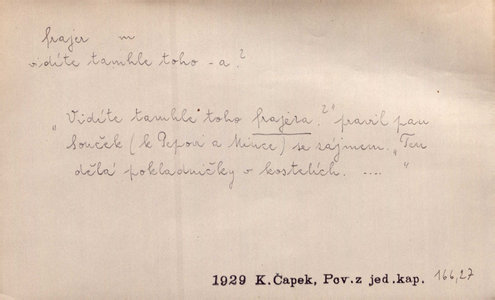 frajer m
vidíte tamhle toho -a?
„Vidíte tamhle toho frajera?" pravil pan
Souček (k Pepovi a Mince) se zájmem. „Ten
dělá pokladničky v kostelích. .... "
1929 K.Čapek, Pov.z jed.kap. 166,27